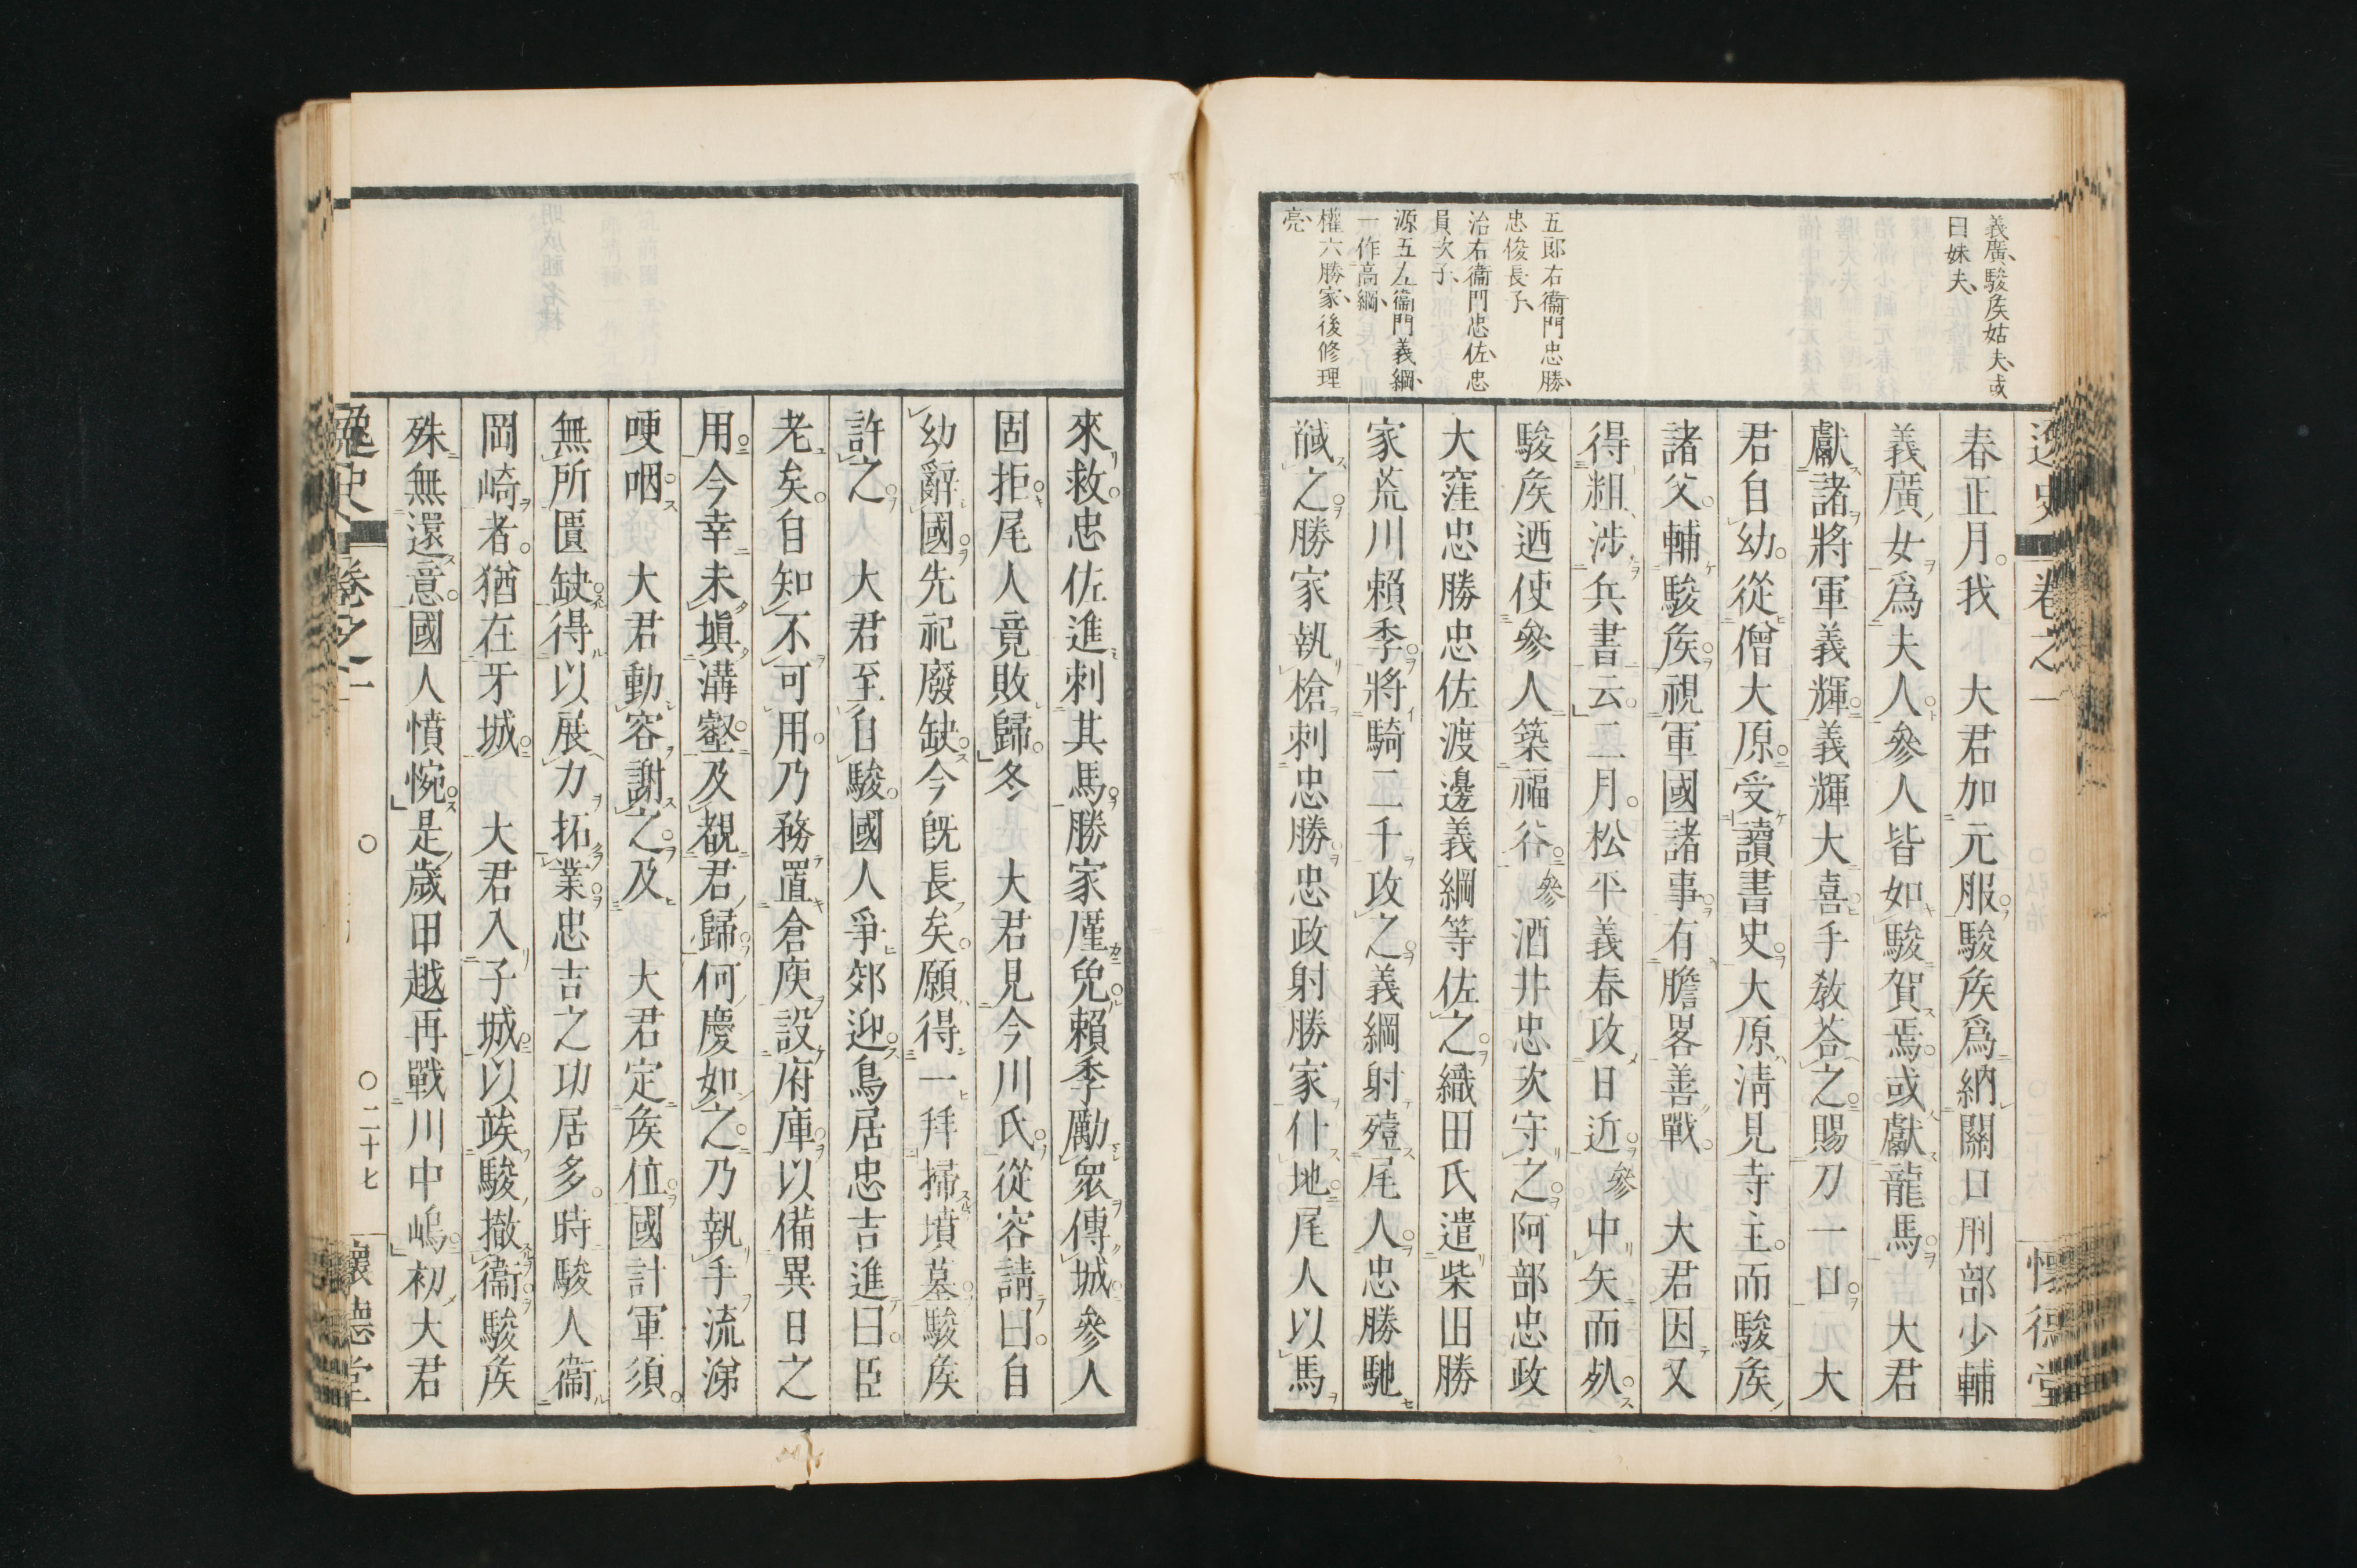 逸史
卷之一
懷德堂
義廣、駿矦姑夫、或
曰妹夫、
五郎右衞門忠勝、
忠俊長子、
治右衞門忠佐、忠
員次子、
源五左衞門義綱、
一作高綱、
權六勝家、後修理
亮、
春正月。我　大君加元服。駿矦爲納關口刑部少輔
義廣女爲夫人。參人皆如駿賀焉。或獻龍馬。　大君
獻諸將軍義輝。義輝大喜。手教荅之。賜刀一口。　大
君自幼。從僧大原。受讀書史。大原淸見寺主。而駿矦
諸父。輔駿矦。視軍國諸事。有膽畧善戰。　大君因又
得粗涉兵書云。二月。松平義春攻日近。參中矢而死。
駿矦迺使參人築福谷。參酒井忠次守之。阿部忠政
大窪忠勝忠佐渡邊義綱等佐之。織田氏遣柴田勝
家荒川賴季。將騎二千攻之。義綱射殪尾人。忠勝馳
馘之。勝家執槍刺忠勝。忠政射勝家什地。尾人以馬
來救。忠佐進刺其馬。勝家厪免。賴季勵衆傳城。參人
固拒。尾人竟敗歸。冬　大君見今川氏。從容請曰。自
幼辭國。先祀廢缺。今既長矣。願得一拜掃墳墓。駿矦
許之。　大君至自駿。國人爭郊迎。鳥居忠吉進曰。臣
老矣。自知不可用。乃務置倉庾設府庫。以備異日之
用。今幸未塡溝壑。及覩君歸。何慶如之。乃執手流涕
哽咽。　大君動容謝之。及　大君定矦位。國計軍須。
無所匱缺。得以展力拓業。忠吉之功居多。時駿人衞
岡崎者。猶在牙城。　大君入子城。以竢駿撤衞。駿矦
殊無還意。國人憤惋。是歲甲越再戰川中嶋。初大君
逸史
卷之一
二十七
懷德堂